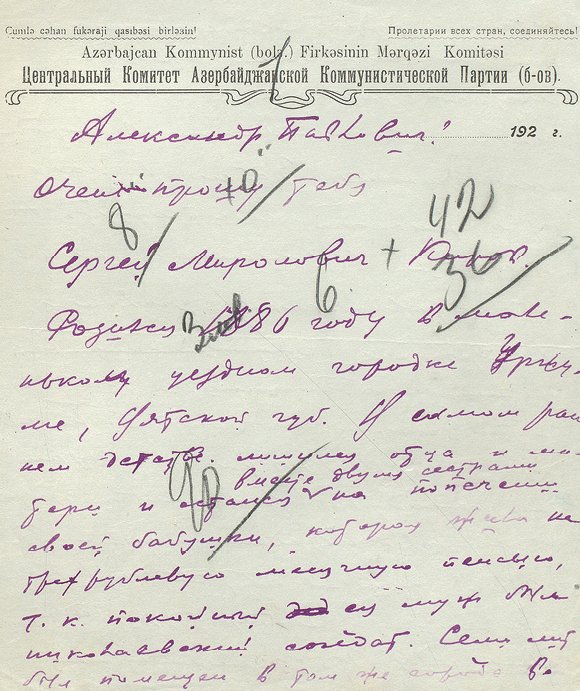 Cumlə cəhan fukəraji qasıbəsi birləsin!
Пролетарии всех стран, соединяйтесь!
Azərbajcan Kommynist (bolş.) Firkəsinin Mərqəzi Komitəsi
Центральный Комитет Азербайджанской Коммунистической Партии (б-ов).
192 г.
Александр Павлович!
Очень прошу тебя
8 10
42
Сергей Миронович + Киров.
36
6
Родился 1886 году в мале-
ньком уездном городке Уржу-
ме, Вятской губ. В самом ран
нем детстве лишился отца и ма-
вместе двумя сестрами
тери и остался на попечении
своей бабушки, которая жила на
трехрублевую месячную пенсию,
т. к. покойный ее муж был
николаевский солдат. Семи лет
был помещен в том же городе в